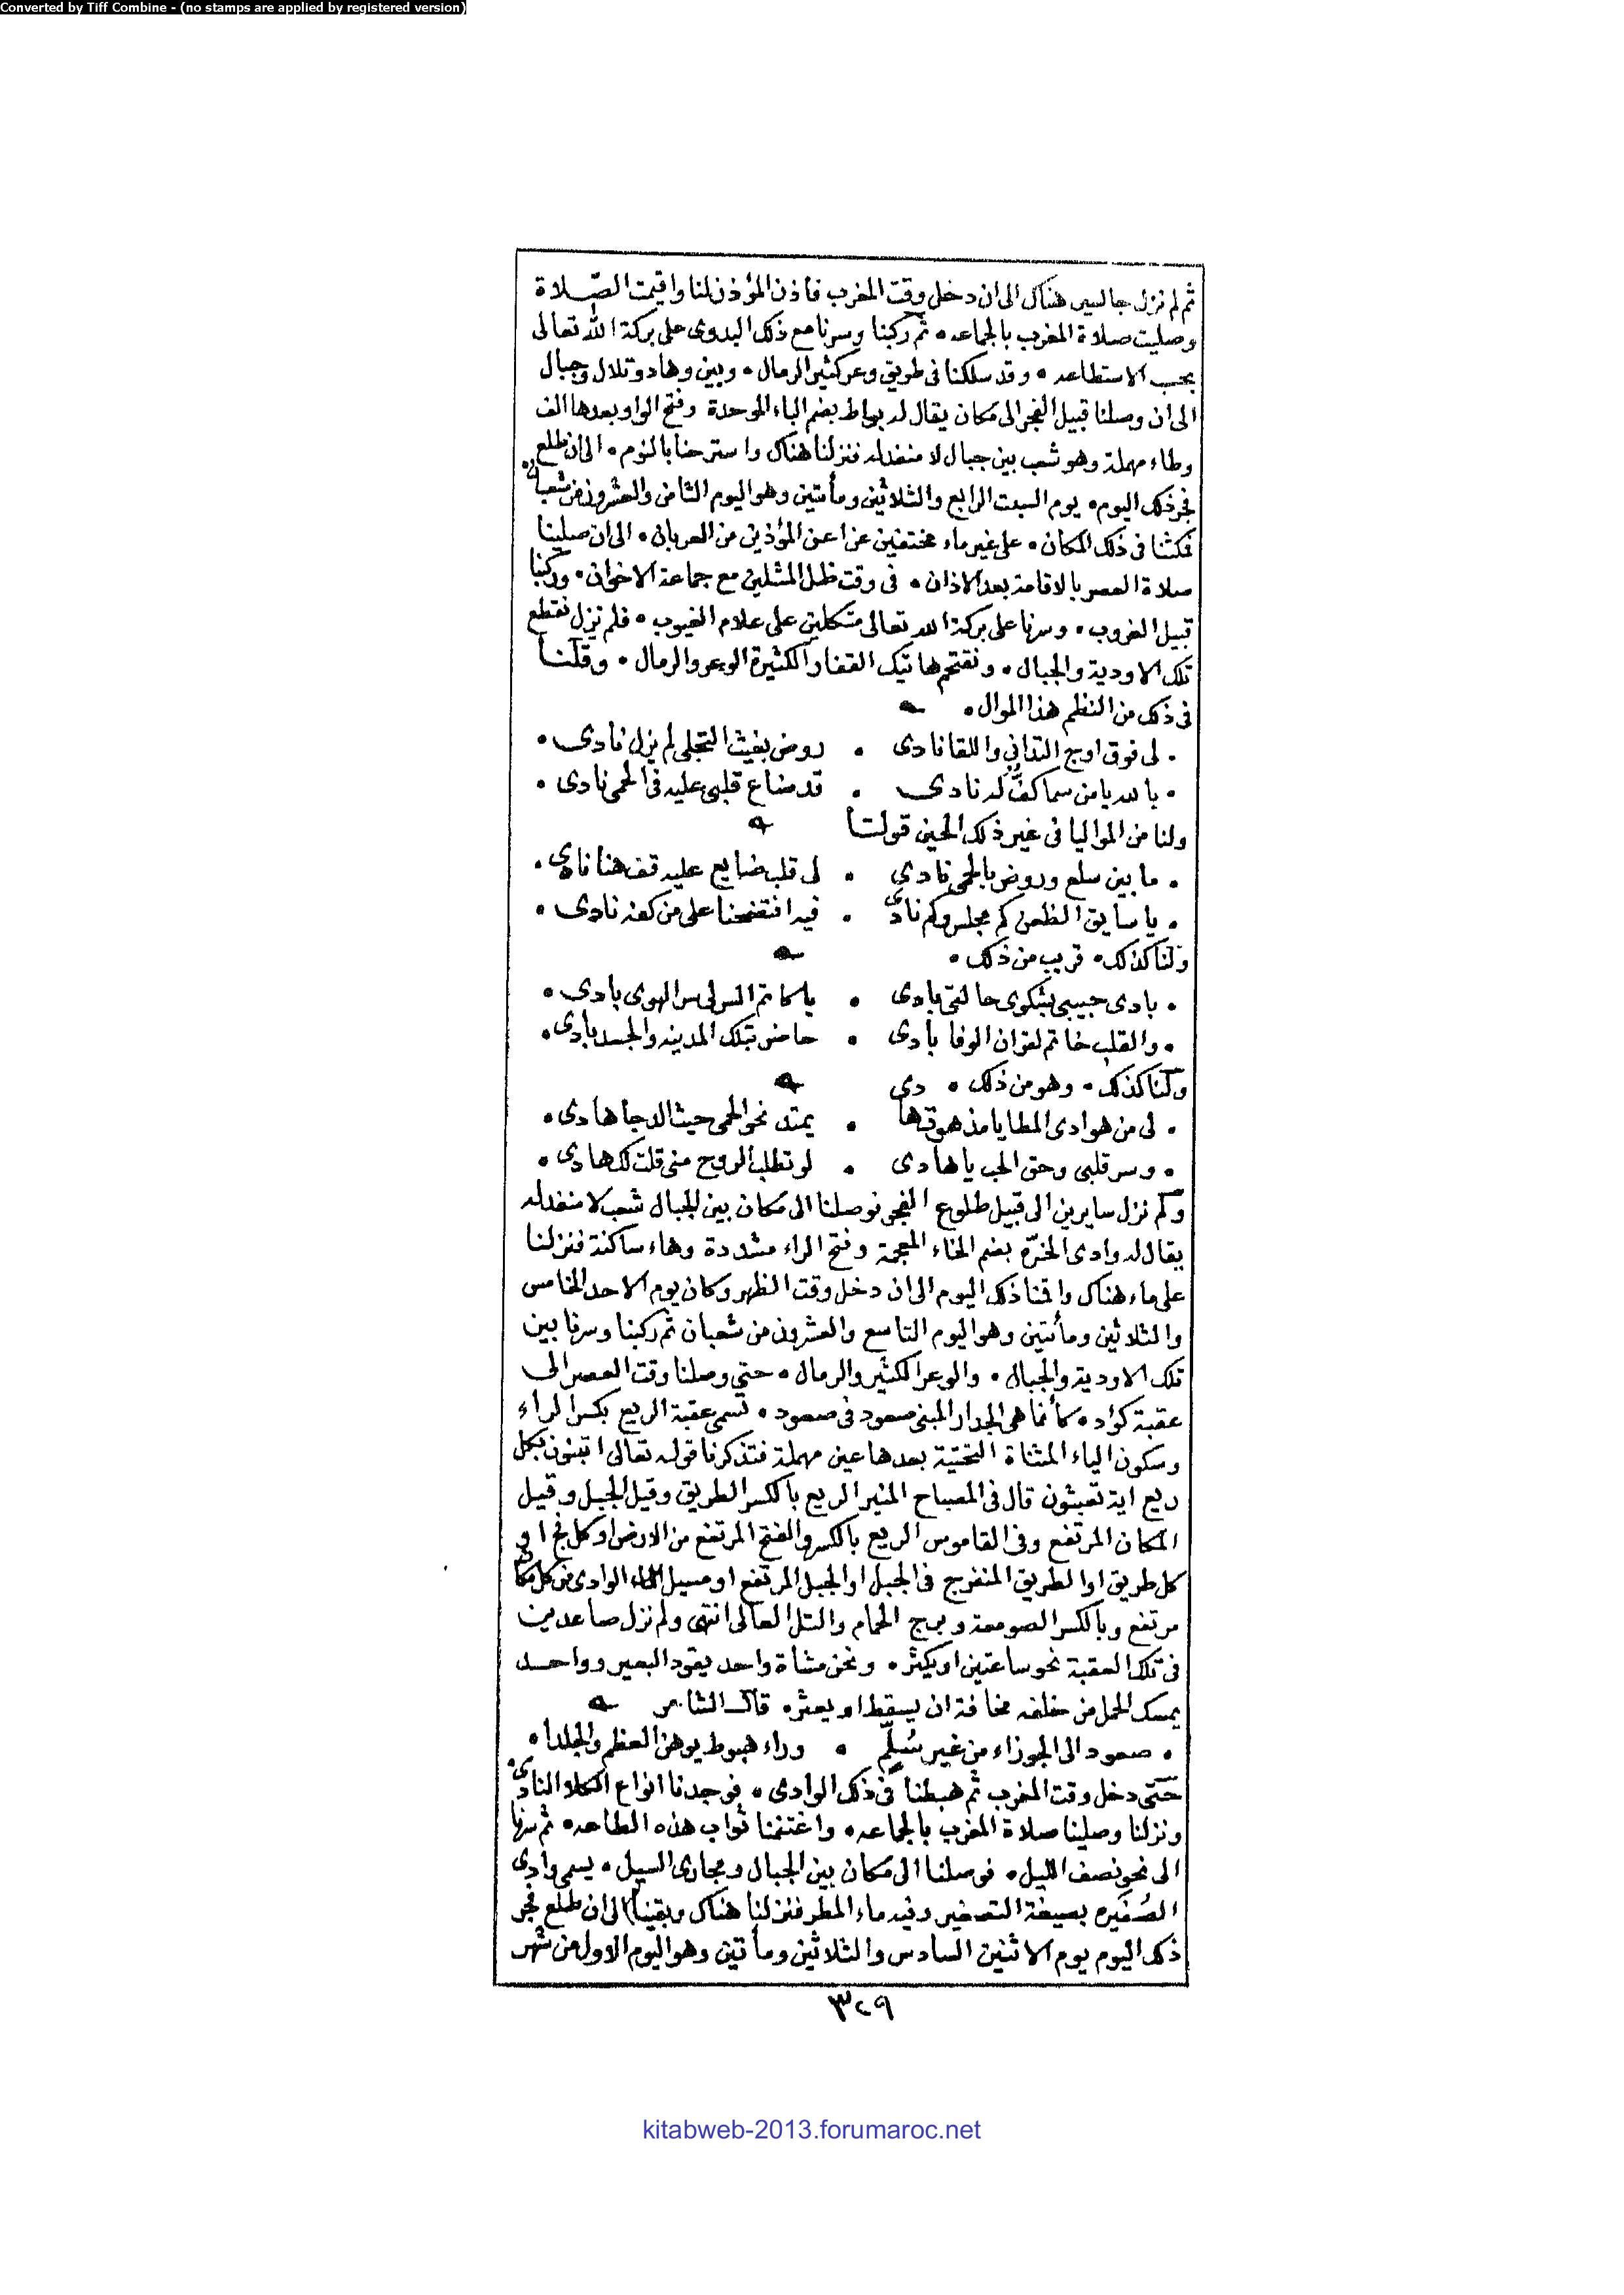 Converted by Tiff Combine - (no stamps are applied by registered version)
ثم لم نزل جالسين هناك الى ان دخل وقت المغرب فأذن المؤذن لنا واقيمت الصّلاة
وصليت صلاة المغرب بالجماعه • ثم ركبنا وسرنا مع ذلك البدوى على بركة الله تعالى
بحسب الاستطاعه • وقد سلكنا فى طريق وعر كثير الرمال • وبين وهاد وتلال وجبال
الى ان وصلنا قبيل الفجر الى مكان يقال له بواط بضم الباء الموحدة وفتح الواو بعدها الف
وطاء مهملة وهو شعب بين جبال لا منفذ له فنزلنا هناك واسترحنا بالنوم • الى ان طلع
فجر ذلك اليوم • يوم السبت الرابع والثلاثين ومأتين وهو اليوم الثامن والعشرون من شعبان •
فمكثنا فى ذلك المكان • على غير ماء مختفين عن اعين المؤذين من العربان • الى ان صلينا
صلاة العصر بالاقامة بعد الاذان • فى وقت ظل المثلين مع جماعة الاخوان • وركبنا
قبيل الغروب • وسرنا على بركة الله تعالى متكلين على علام الغيوب • فلم نزل نقطع
تلك الاودية والجبال • ونقتحم هاتيك القفار الكثيرة الوعر والرمال • وقلنا
فى ذلك من النظم هذا الموال •
• لى فوق اوج التدانى واللقا نادى • روض بغيث التجلى لم يزل نادى •
• بالله يا من سما كفٌّ له نادى • قد ضاع قلبى عليه فى الحمى نادى •
ولنا من المواليا فى غير ذلك الحين قولنا
• ما بين سلع وروض بالحمى نادى • لى قلب ضايع عليه قف هنا نادى •
• يا سايق الظعن كم مجلس وكم نادى • فيه افتضحنا على من كفه نادى •
ولنا كذلك • قريب من ذلك •
• بادى حبيبى بشكوى حالتى بادى • يا كاتم السر لى سر الهوى بادى •
• والقلب خاتم لغزان الوفا بادى • حاضر بتلك المدينه والجسد بادى •
ولنا كذلك • وهو من ذلك • دى
• لى من هوادى المطايا مذ هوتها • يمتد نحو الحمى حيث الدجا هادى •
• وسر قلبى وحق الحب يا هادى • لو تطلب الروح منى قلت لك هادى •
ولم نزل سايرين الى قبيل طلوع الفجر فوصلنا الى مكان بين الجبال شعب لا منفذ له
يقال له وادى الخرّه بضم الخاء المعجمة وفتح الراء مشددة وهاء ساكنة فنزلنا
على ماء هناك واقمنا ذلك اليوم الى ان دخل وقت الظهر وكان يوم الاحد الخامس
والثلاثين ومأتين وهو اليوم التاسع والعشرون من شعبان ثم ركبنا وسرنا بين
تلك الاودية والجبال • والوعر الكثير والرمال • حتى وصلنا وقت العصر الى
عقبة كؤد • كأنما هى الجدار المبنى صعود فى صعود • تسمى عقبة الريع بكسر الراء
وسكون الياء المثناة التحتيّة بعدها عين مهملة فتذكرنا قوله تعالى اتبنون بكل
ريع اية تعبثون قال فى المصباح المنير الريع بالكسر الطريق وقيل الجبل وقيل
المكان المرتفع وفى القاموس الريع بالكسر والفتح المرتفع من الارض او كل فج او
كل طريق او الطريق المنفرج فى الجبل او الجبل المرتفع او مسيل الماء الوادى من كل مكان
مرتفع وبالكسر الصومعة وبرج الحمام والتل العالى انتهى ولم نزل صاعدين
فى تلك العقبة نحو ساعتين او يكثر • ونحن مشاة واحد يقود البعير وواحد
يمسك الحمل من خلفه مخافة ان يسقط او يعثر • قال الشاعر
• صعود الى الجوزاء من غير سُلّم • وراء هبوط يوهن العظم والجلدا •
حتّى دخل وقت المغرب ثم هبطنا فى ذلك الوادى • فوجدنا انواع الكلاء النادى •
ونزلنا وصلينا صلاة المغرب بالجماعه • واغتنمنا ثواب هذه الطاعه • ثم سرنا
الى نحو نصف الليل • فوصلنا الى مكان بين الجبال ومجارى السيل • يسمى وادى
الصُغَيره بصيغة التصغير وفيه ماء المطر فنزلنا هناك وبقينا الى ان طلع فجر
ذلك اليوم يوم الاثنين السادس والثلاثين ومأتين وهو اليوم الاول من شهر
٣٢٩
kitabweb-2013.forumaroc.net